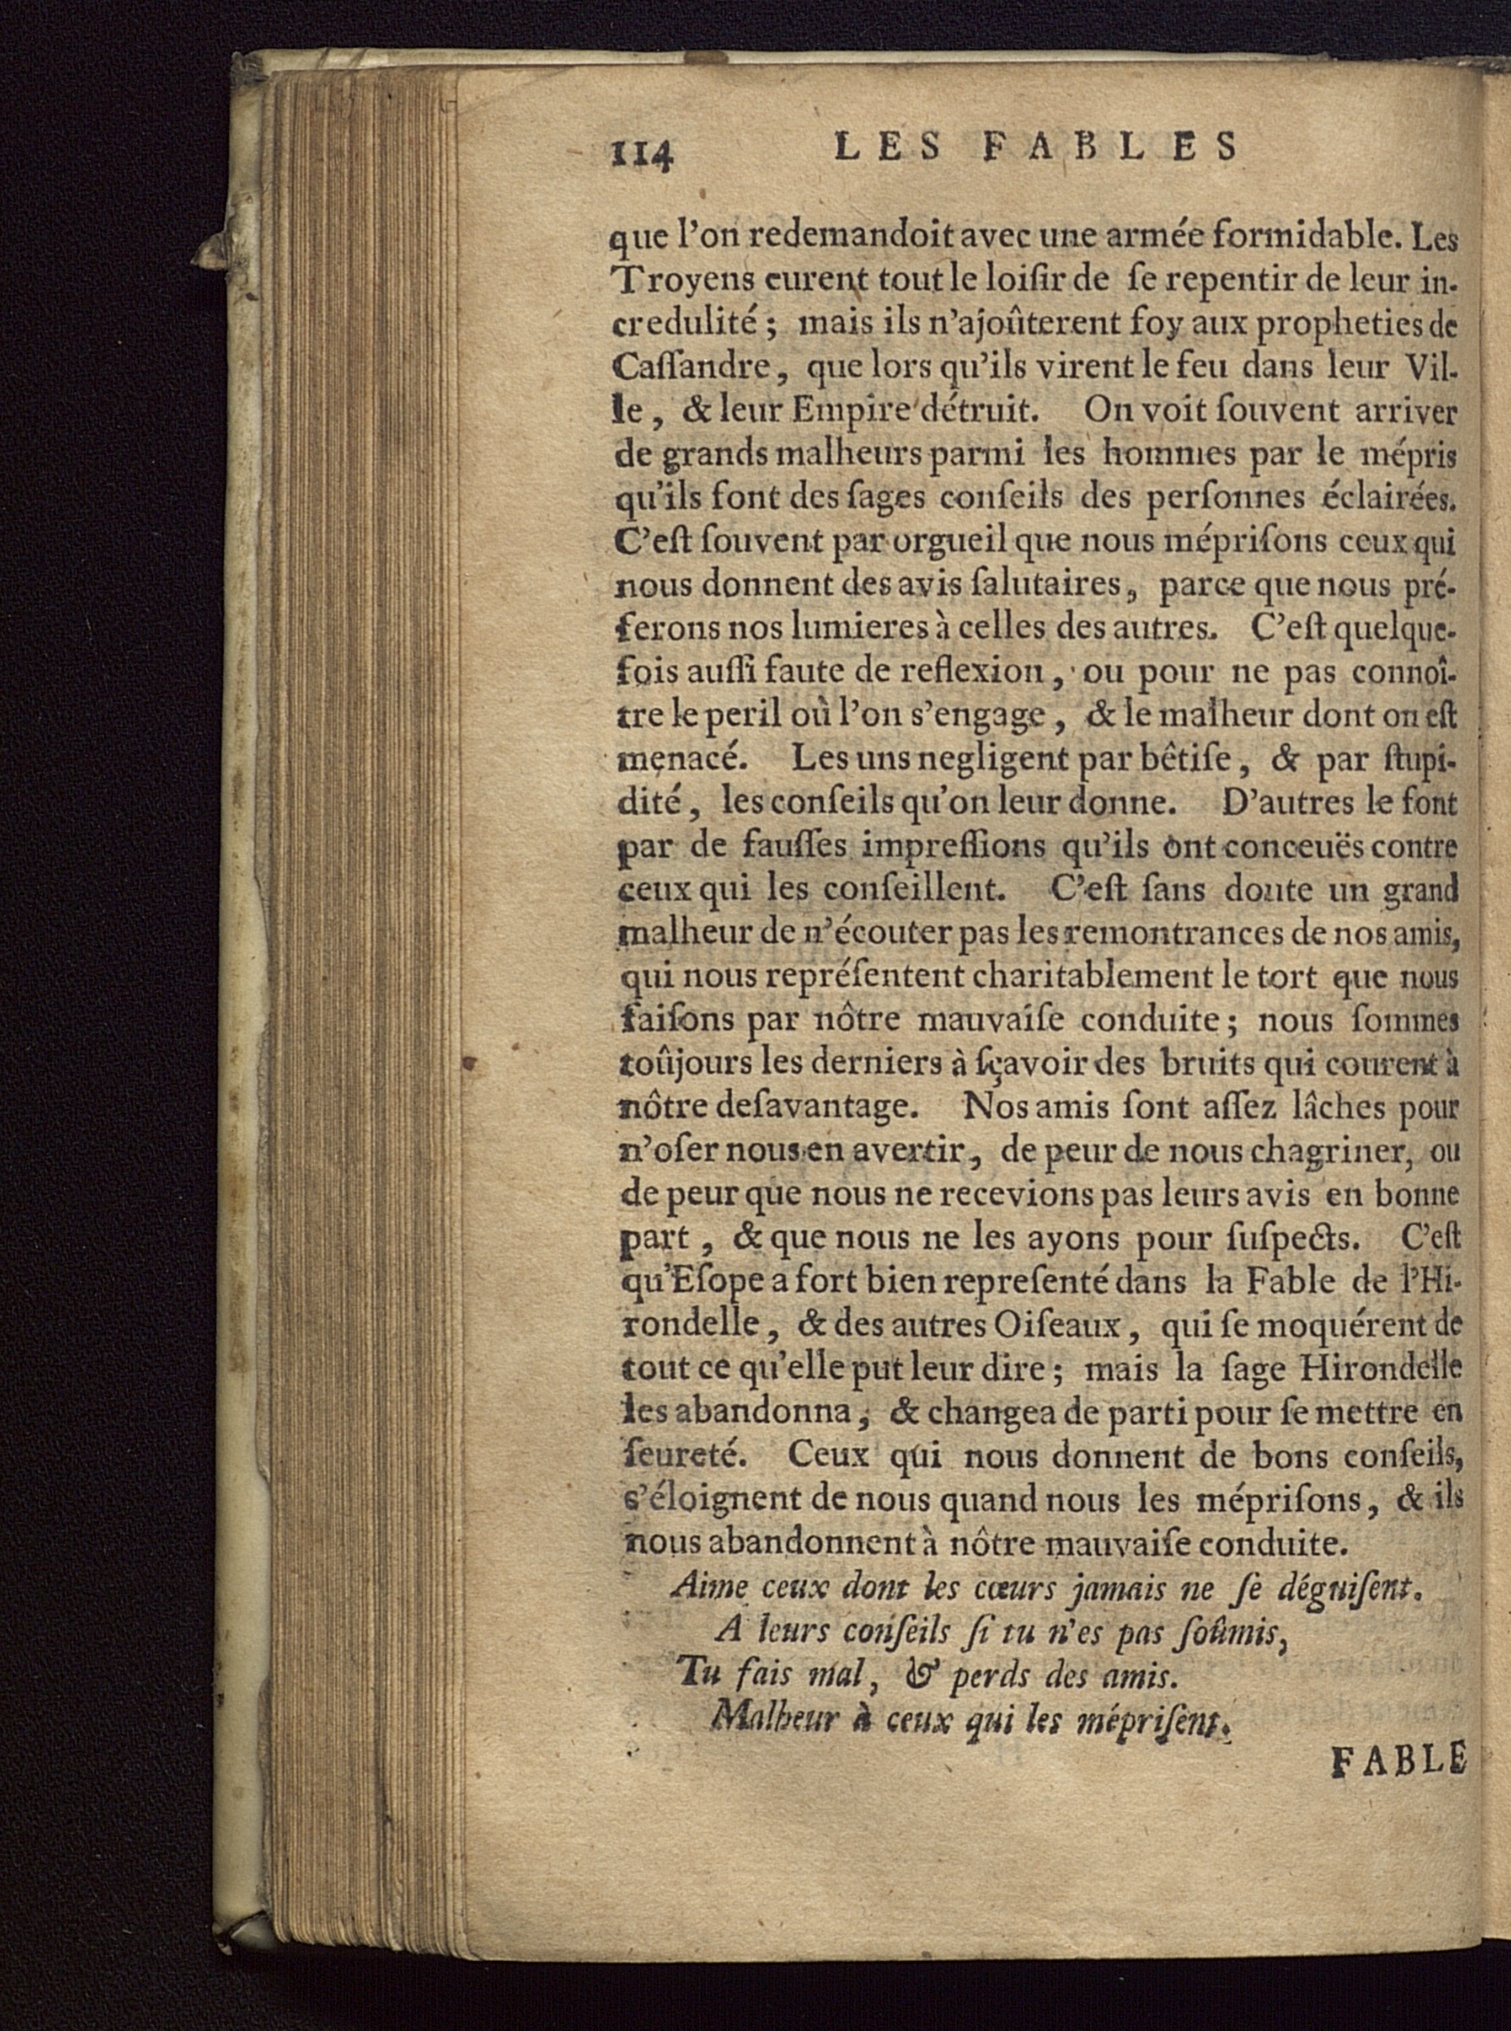 114 LES FABLES
que l'on redemandoit avec une armée formidable. Les
Troyens eurent tout le loiſir de ſe repentir de leur in-
credulité ; mais ils n'ajoûterent foy aux propheties de
Caſſandre, que lors qu'ils virent le feu dans leur Vil-
le, & leur Empire détruit. On voit ſouvent arriver
de grands malheurs parmi les hommes par le mépris
qu'ils font des ſages conſeils des perſonnes éclairées.
C'eſt ſouvent par orgueil que nous mépriſons ceux qui
nous donnent des avis ſalutaires, parce que nous pré-
ferons nos lumieres à celles des autres. C'eſt quelque-
fois auſſi faute de reflexion, ou pour ne pas connoî-
tre le peril où l'on s'engage, & le malheur dont on eſt
menacé. Les uns negligent par bêtiſe, & par ſtupi-
dité, les conſeils qu'on leur donne. D'autres le font
par de fauſſes impreſſions qu'ils ont conceuës contre
ceux qui les conſeillent. C'eſt ſans doute un grand
malheur de n'écouter pas les remontrances de nos amis,
qui nous repréſentent charitablement le tort que nous
faiſons par nôtre mauvaiſe conduite; nous ſommes
toûjours les derniers à ſçavoir des bruits qui courent à
nôtre deſavantage. Nos amis ſont aſſez lâches pour
n'oſer nous en avertir, de peur de nous chagriner, ou
de peur que nous ne recevions pas leurs avis en bonne
part, & que nous ne les ayons pour ſuſpects. C'eſt
qu'Eſope a fort bien repreſenté dans la Fable de l'Hi-
rondelle, & des autres Oiſeaux, qui ſe moquérent de
tout ce qu'elle put leur dire; mais la ſage Hirondelle
les abandonna, & changea de parti pour ſe mettre en
ſeureté. Ceux qui nous donnent de bons conſeils,
s'éloignent de nous quand nous les mépriſons, & ils
nous abandonnent à nôtre mauvaiſe conduite.
Aime ceux dont les cœurs jamais ne ſe déguiſent.
A leurs conſeils ſi tu n'es pas ſoûmis,
Tu fais mal, & perds des amis.
Malheur à ceux qui les mépriſent.
FABLE